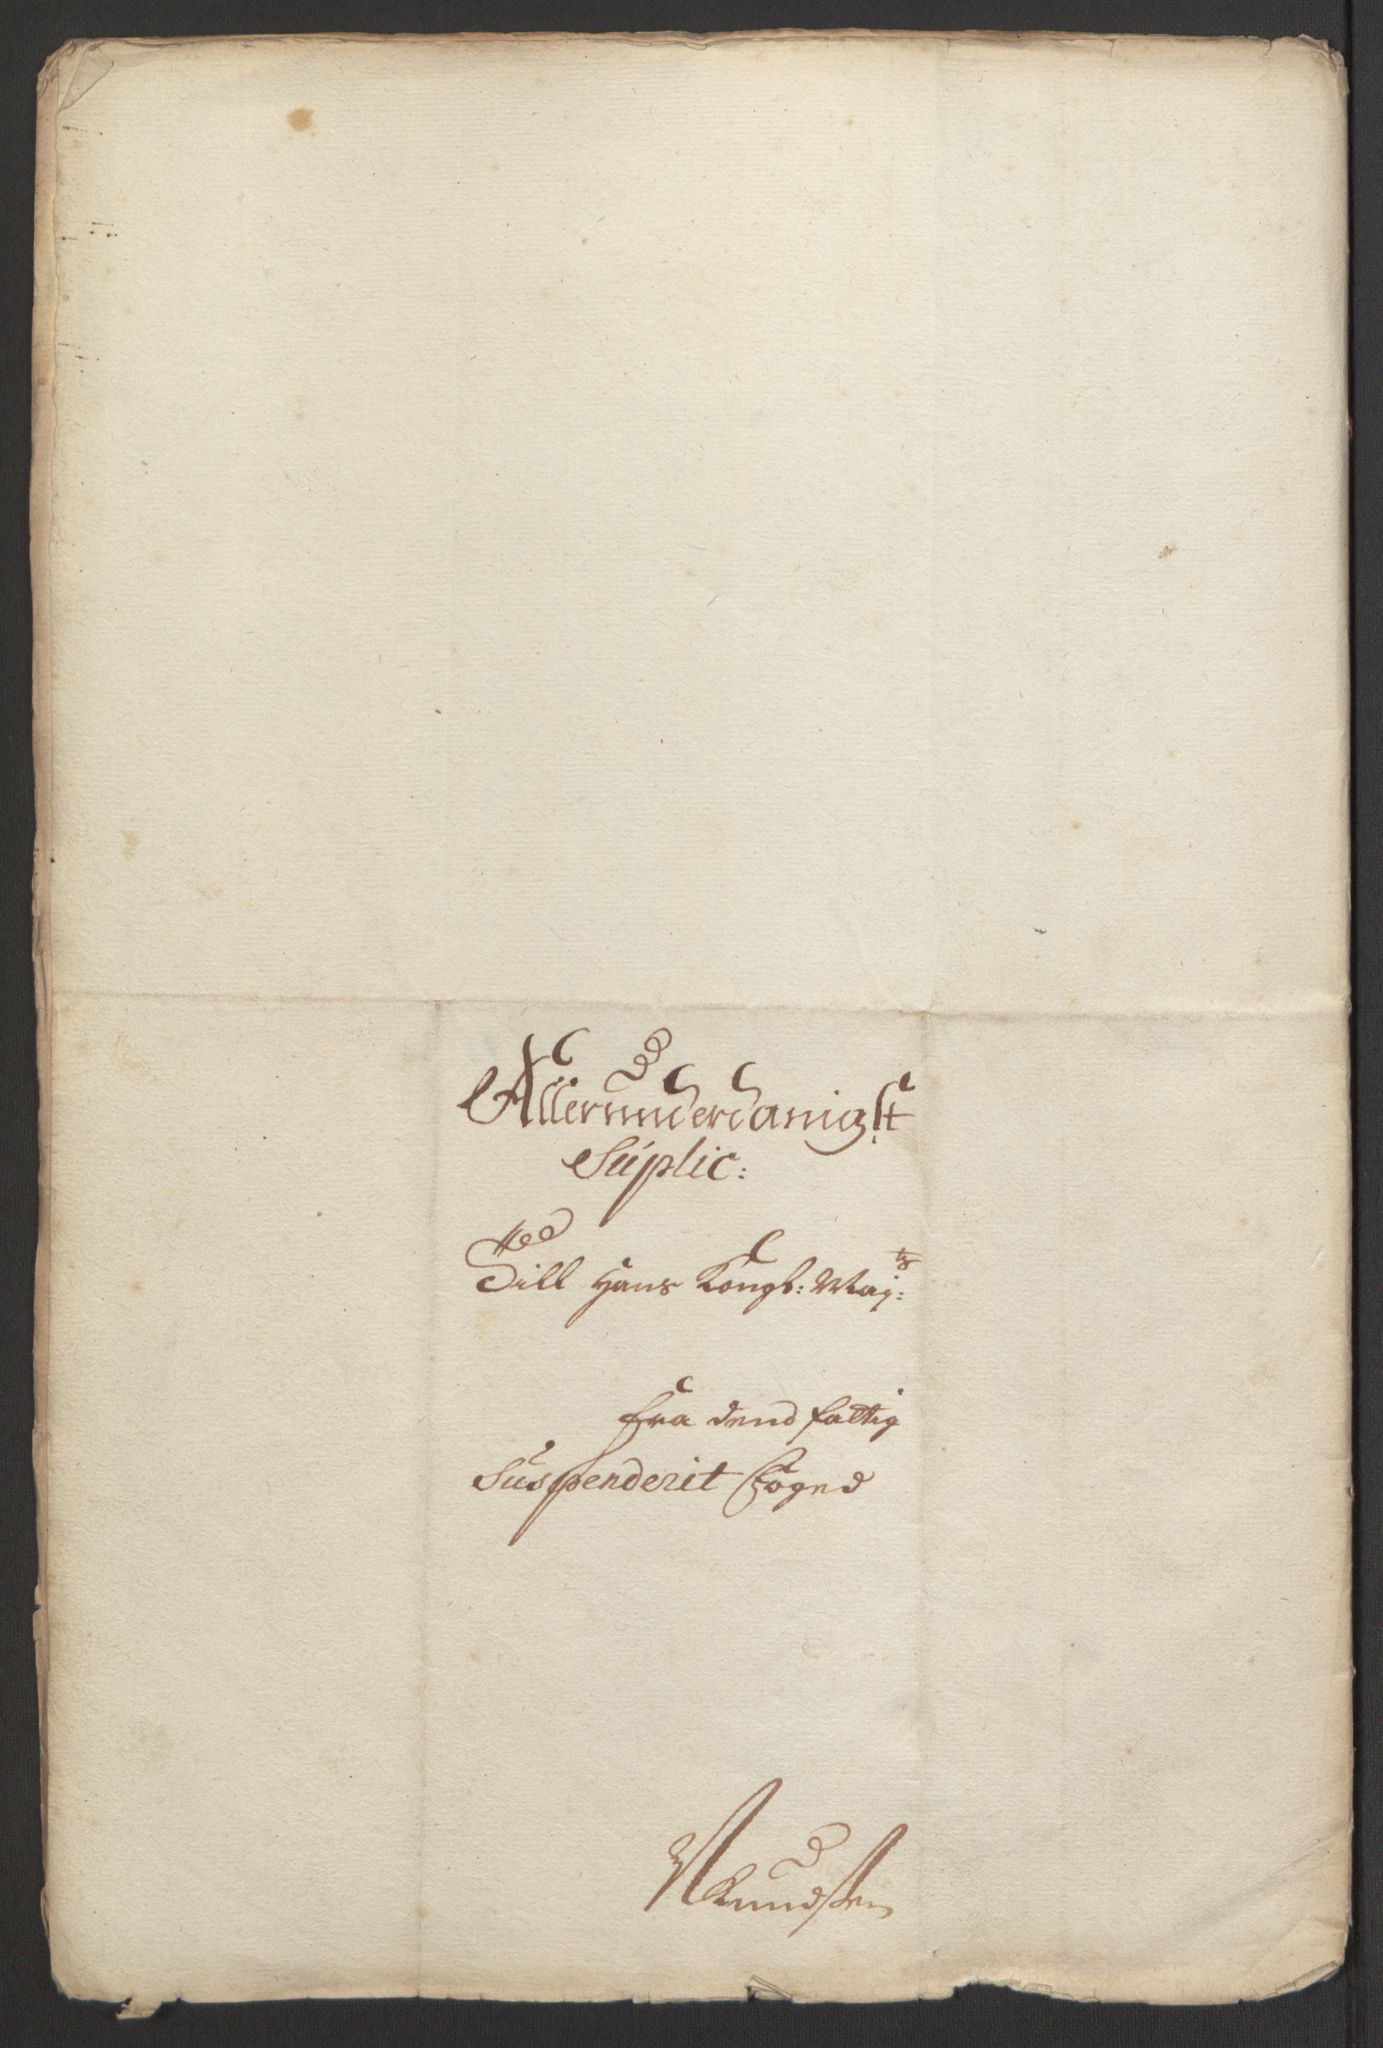 Allerunderdanigst
Suplic:
Till Hans Kongl: Maj:ts
fra dend fattig
Suspenderit Foged
Knudsen